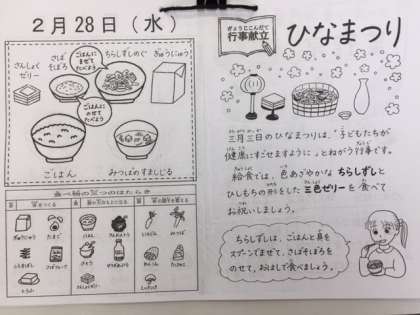 2月28日（水）
さんしょく
ゼリー
さば
そぼろ
ちらしずしのぐ
ぎゅうにゅう
ごはんに
まぜて
たべよう
ごはんに
のせて
たべよう
ごはん
みつばのすましじる
食べ物の三つのはたらき
ぎゅうにゅう
たまご
ごはん
さとう
にんじん
とうふ
ぎょうじこんだて
行事献立
ひなまつり
三月三日のひなまつりは、「子どもたちが
健康にすごせますように」とねがう行事です。
給食では、色あざやかな ちらしずしと
ひしもちの形をした 三色ゼリーを食べて
お祝いしましょう。
ちらしずしは、ごはんと具を
スプーンでまぜて、さばそぼろを
のせて、おはしで食べましょう。